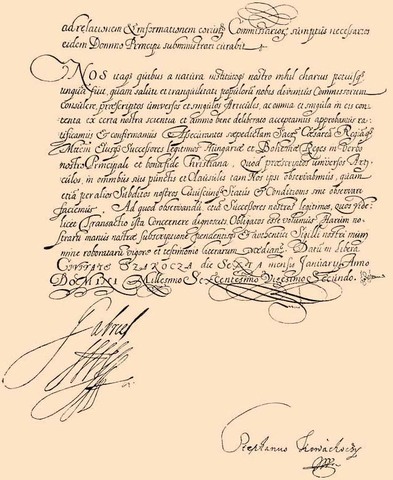 ad relationem & informationem eorund. Commissariorū, sumptus necessarios
eidem Domino Principi subministrari curabit
NOS itaq quibus a natura institutoq nostro nihil charius petiusq
unquā fuit, quam saluti et tranquilitati populorū nobis divinitus Commissorum
Consulere, præscriptos universos et singulos Articulos, ac omnia et singula in eis con
tenta ex certa nostra scientia et animo bene deliberato acceptamus approbamus ra
tificamus & confirmamus Assecurantes præedictam Sacrā Cæsareā Regiaq
Mttem Eiusq Successores legitimos Hungariæ et Bohemiæ Reges in Verbo
nostro Principale et bona fide Christiana, Quod præscriptos universos Arti
culos, in omnibus suis punctis et Clausulis tam Nos ipsi observabimus, quam
etiā per alios Subditos nostros Cuiuscunq Status & Conditionis sint observari
faciemus. Ad quod observandū etiā Successores nostros legitimos, quos vide
licet Transactio ista Concernere dignoscitur, Obligatos esse volumus Harum no
strarū manus nostræ subscriptione pendentisq et authentici Sigilli nostri muni
mine roboratarū vigore et testimonio literarum mediante. Datū in Libera
CIVITATE BRAKOCZA die SEXTA mensis Januarij Anno
DOMINI Millesimo Sexcentesimo Vigesimo Secundo.
Gabriel
Stephanus Kowachoczy